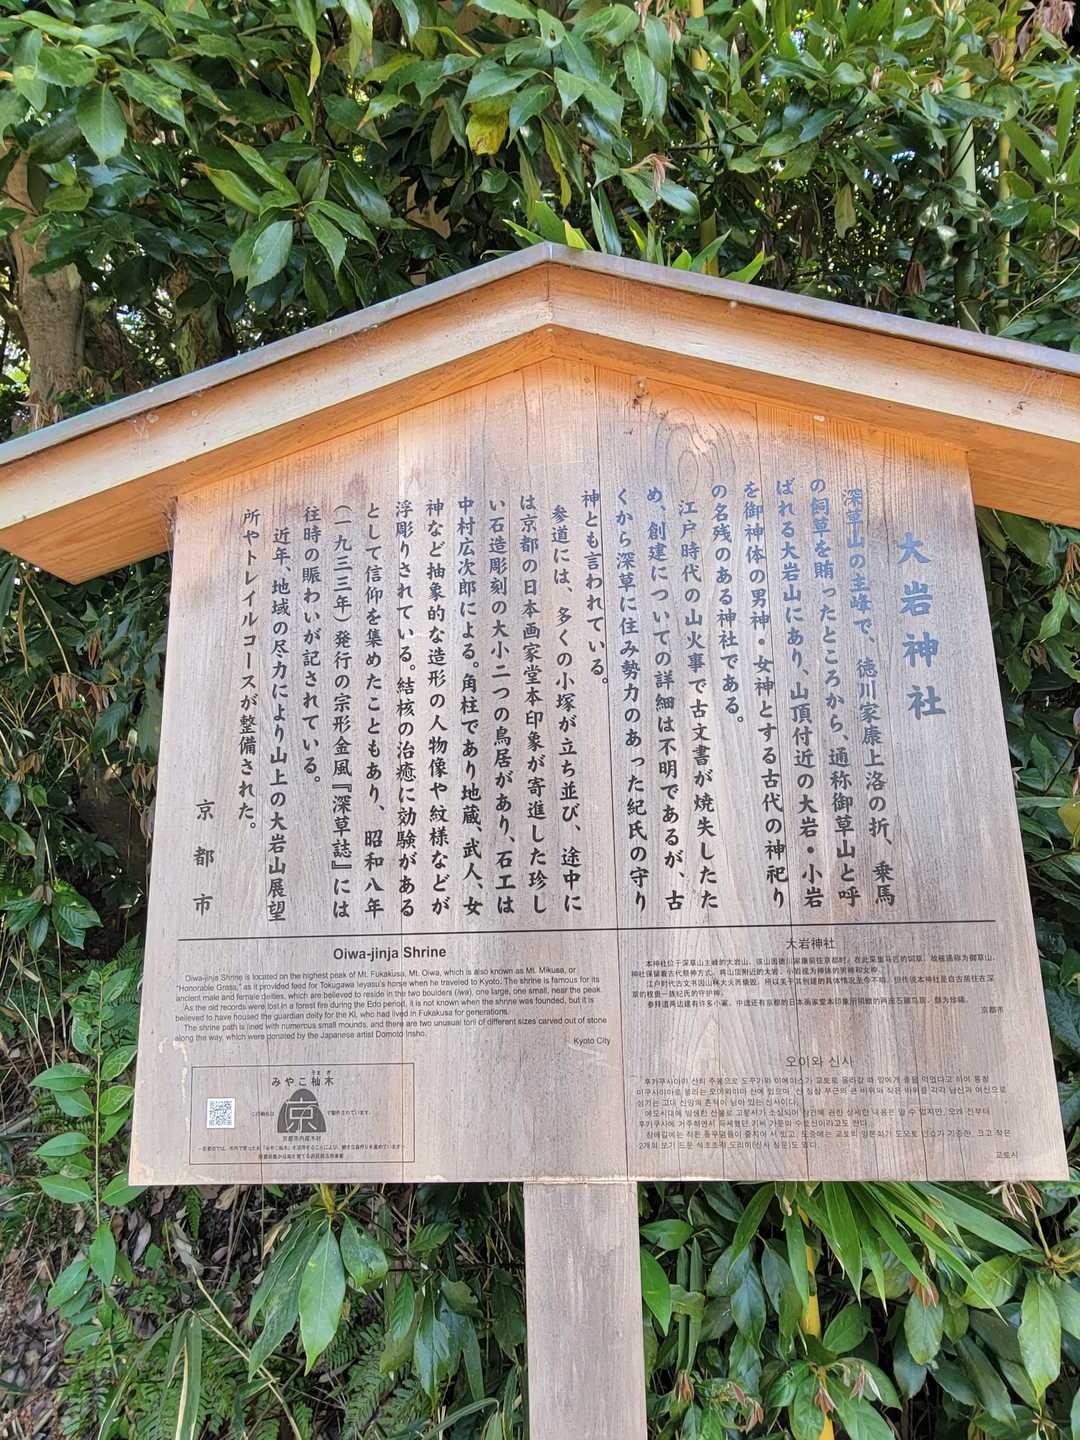 大岩神社
深草山の主峰で、徳川家康上洛の折、乗馬
の飼草を賄ったところから、通称御草山と呼
ばれる大岩山にあり、山頂付近の大岩・小岩
を御神体の男神・女神とする古代の神祀り
の名残のある神社である。
江戸時代の山火事で古文書が焼失したた
め、創建についての詳細は不明であるが、古
くから深草に住み勢力のあった紀氏の守り
神とも言われている。
参道には、多くの小塚が立ち並び、途中に
は京都の日本画家堂本印象が寄進した珍し
い石造彫刻の大小二つの鳥居があり、石工は
中村広次郎による。角柱であり地蔵、武人、女
神など抽象的な造形の人物像や紋様などが
浮彫りされている。結核の治癒に効験がある
として信仰を集めたこともあり、昭和八年
（一九三三年）発行の宗形金風『深草誌』には
往時の賑わいが記されている。
近年、地域の尽力により山上の大岩山展望
所やトレイルコースが整備された。
京都市
Oiwa-jinja Shrine
Oiwa-jinja Shrine is located on the highest peak of Mt. Fukakusa, Mt. Oiwa, which is also known as Mt. Mikusa, or
"Honorable Grass," as it provided feed for Tokugawa Ieyasu's horse when he traveled to Kyoto. The shrine is famous for its
ancient male and female deities, which are believed to reside in the two boulders (iwa), one large, one small, near the peak.
As the old records were lost in a forest fire during the Edo period, it is not known when the shrine was founded, but it is
believed to have housed the guardian deity for the Ki, who had lived in Fukakusa for generations.
The shrine path is lined with numerous small mounds, and there are two unusual torii of different sizes carved out of stone
along the way, which were donated by the Japanese artist Domoto Insho.
Kyoto City
大岩神社
本神社位于深草山主峰的大岩山。该山因德川家康前往京都时，在此采集马匹的饲草，故被通称为御草山。
神社保留着古代祭神方式，将山顶附近的大岩、小岩视为神体的男神和女神。
江户时代古文书因山林大火而烧毁，所以关于其创建的具体情况至今不明，但传说本神社是自古居住在深
草的权贵一族纪氏的守护神。
参拜道两边建有许多小冢，中途还有京都的日本画家堂本印象所捐赠的两座石雕鸟居，颇为珍稀。
京都市
오이와 신사
교토시
みやこ杣木
そまぎ
この駒札は
京
で製作されています。
京都市内産木材